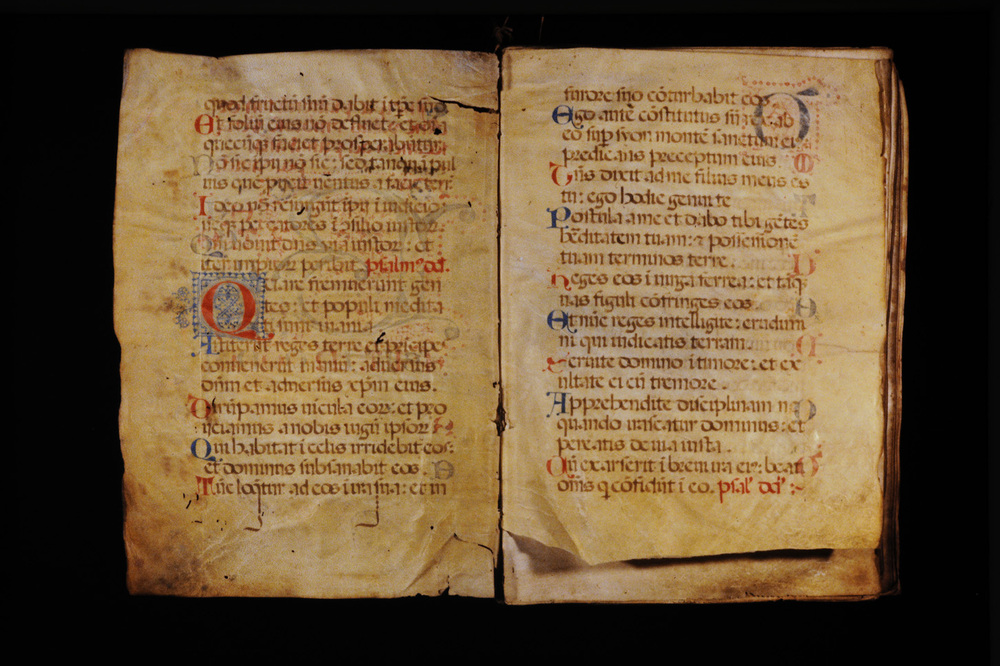 quod fructū suū dabit ī tp̄e suo
Et foliū eius nō defluet: et oīa
quecūq; faciet prosperabūtur
Nō sic īpii nō sic: sed tanquā pul
uis quē proicit uentus a facie terre
Ideo nō resurgūt īpii ī iudicio:
neq; peccatores ī ɔsilio iustor.
Qm̄ nouit dn̄s uiā iustor: et
iter impior peribit. psalm' dd.
Quare fremuerunt gen
tes: et populi medita
ti sunt inania
Astiterūt reges terre et prīcipes
conuenerūt in unū: aduersus
dn̄m et aduersus xp̄m eius.
Dirūpamus uīcula eor: et pro
iciamus a nobis iugū ipsor
Qui habitat ī celis irridebit eos:
et dominus subsanabit eos.
Tūc loq̄tur ad eos ī ira sua: et in
furore suo cōturbabit eos
Ego autē cōstitutus sū rex ab
eo sup syon montē sanctum ei'
predicans preceptum eius.
Dn̄s dixit ad me filius meus es
tu: ego hodie genui te
Postula a me et dabo tibi gētes
hēditatem tuam: ⁊ possessionē
tuam terminos terre.
Reges eos ī uirga ferrea: et tāq
uas figuli cōfringes eos.
Et nūc reges intelligite: erudim
ni qui iudicatis terram.
Seruite domino ī timore: et ex
ultate ei cū tremore.
Apprehendite disciplinam ne
quando irascatur dominus: et
pereatis de uia iusta.
Cū exarserit ī breui ira ei': beati
om̄s q cōfidūt ī eo. psal' dd'